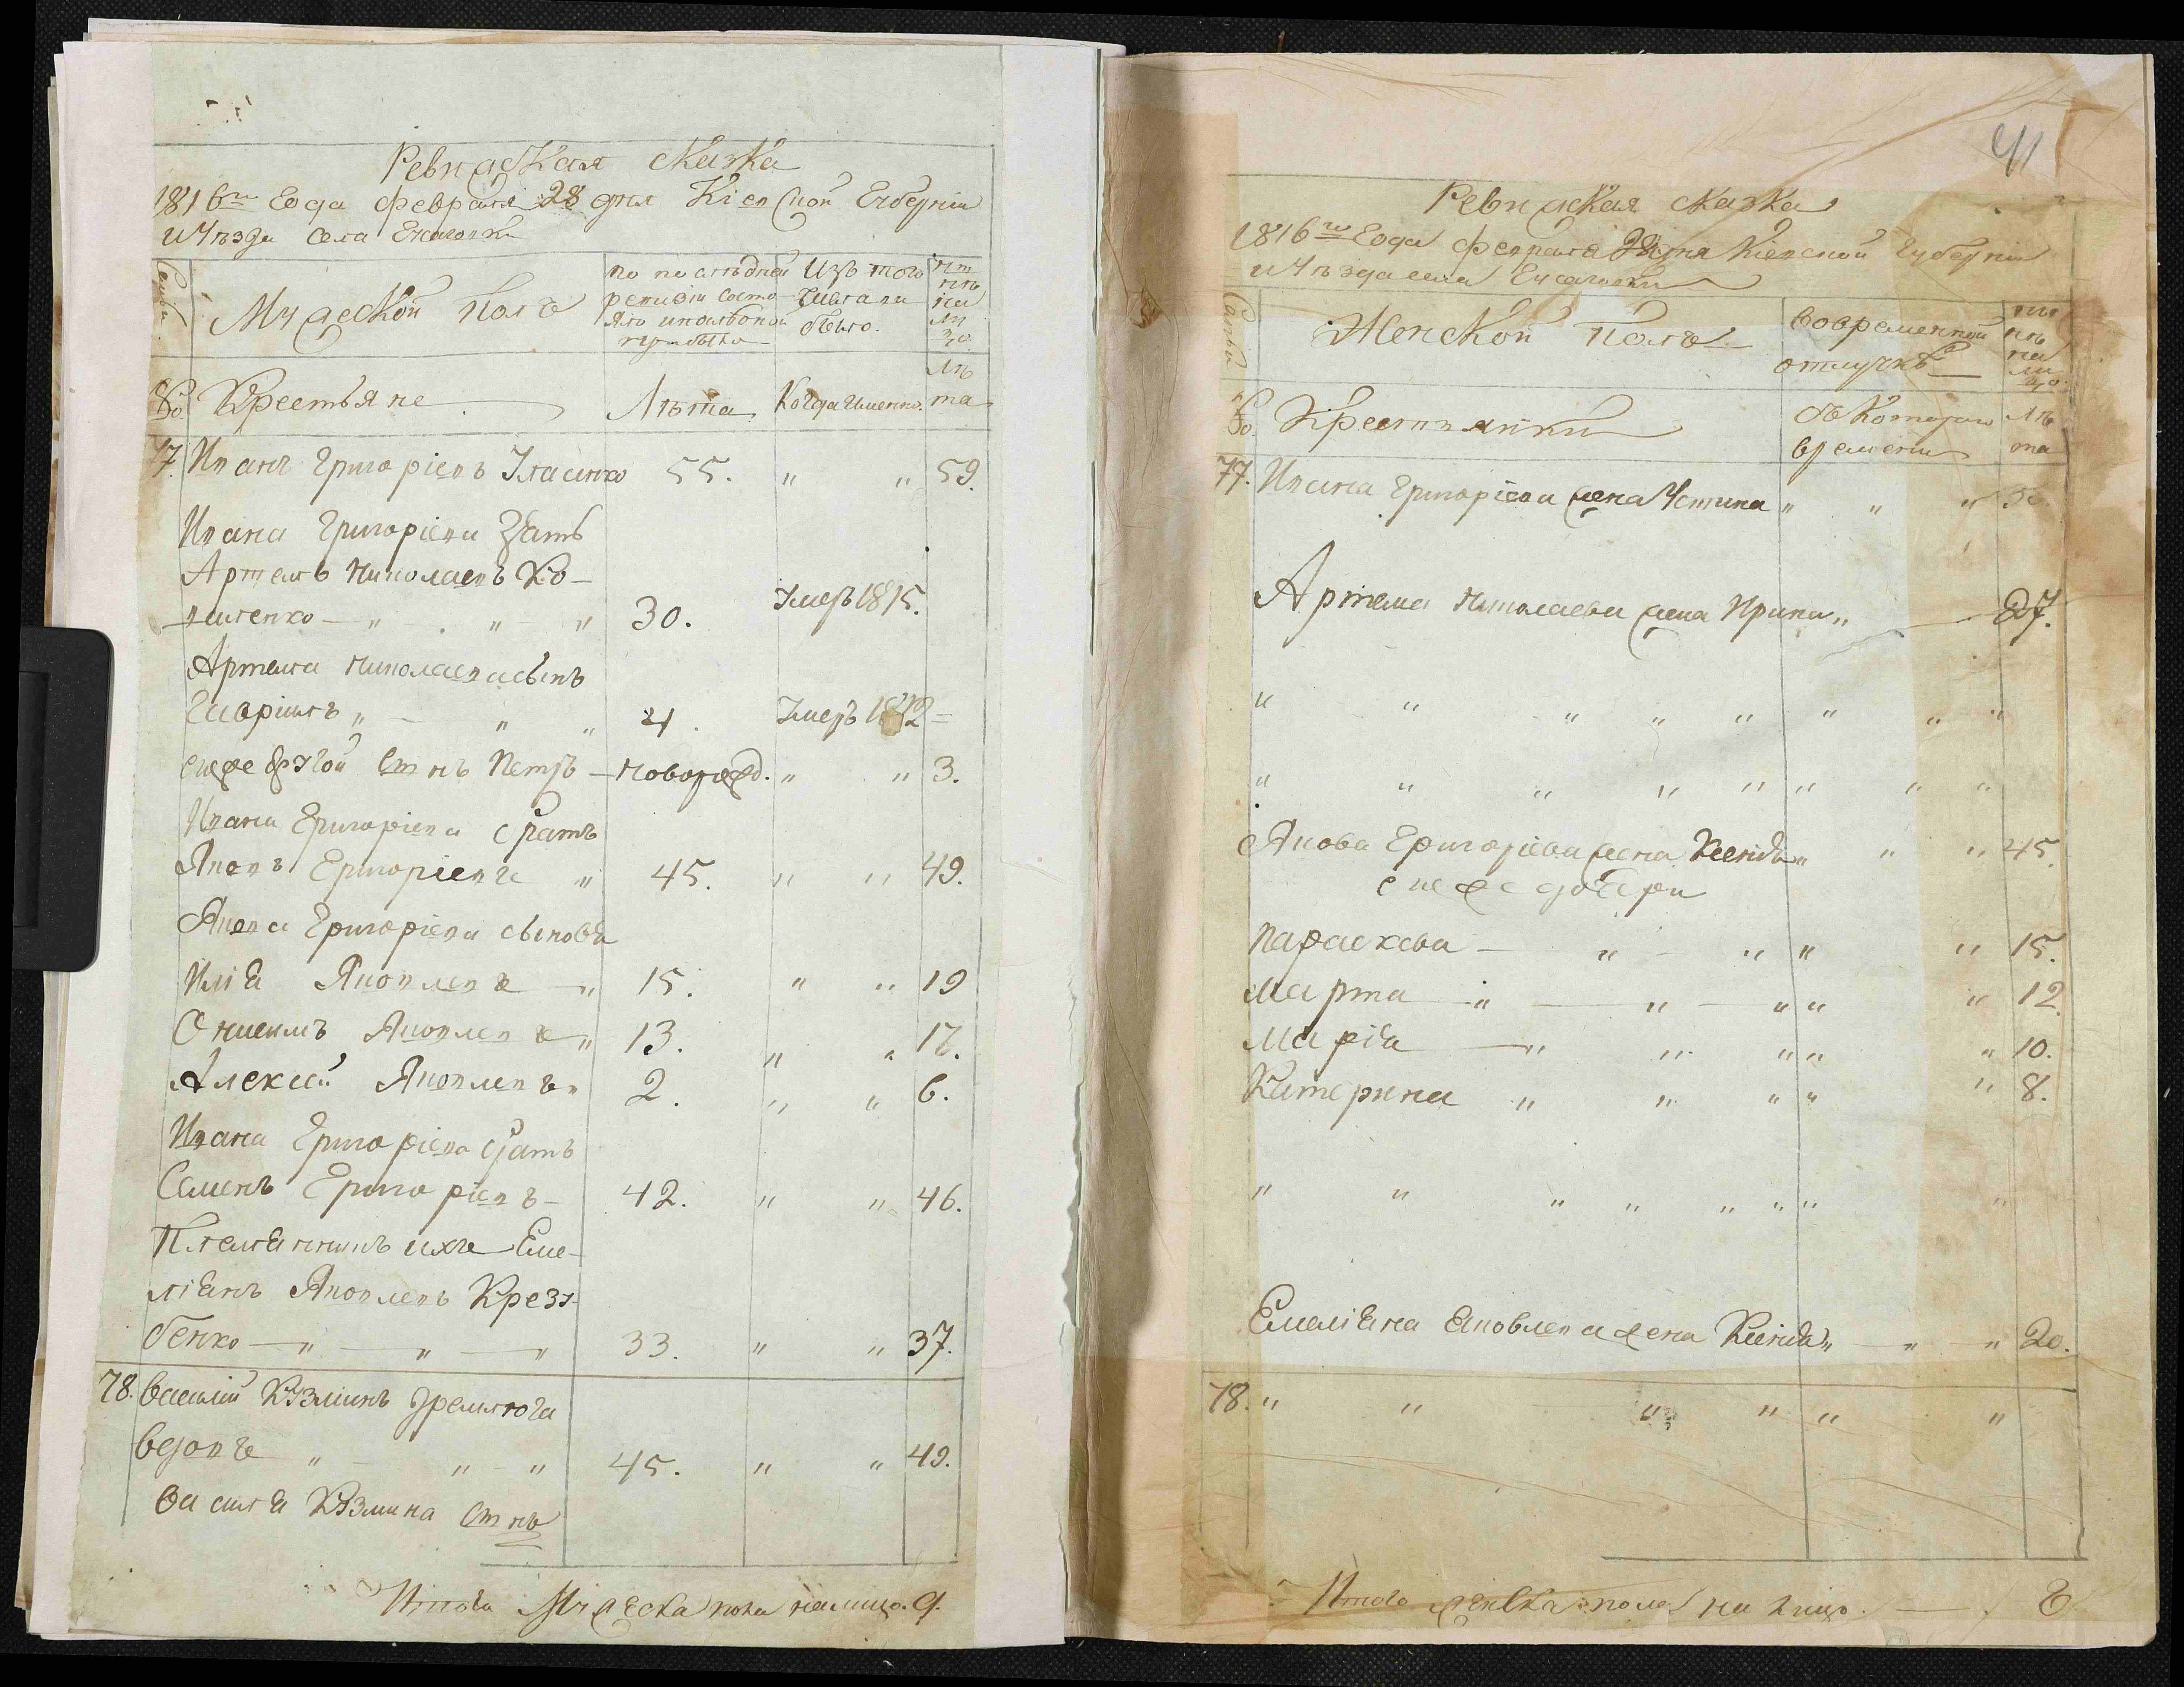 Ревижская сказка
1816го Года Февраля 28 дня Кіевской Губерніи
и Уѣзда Села
Семьи
Мужескои полъ
по послѣдней ревизіи состояло и после оной прибыло
Изъ того числа выбыло.
ны нѣ на ли цо
№о
Крестьяне
Лѣта
Когда именно.
Лѣ та
77. Иванъ Григоріевъ 55. " " 59.
Ивана Григоріева Зять
Артемъ Николаевъ Ко-
-" " " 30. Умеръ 1815.
Артема Николаева сынъ
Гаврилъ " " " 4. Умеръ 1812 -
его же другой сынъ Петръ - новорожд. " " 3.
Ивана Григоріева братъ
Яковъ Григоріевъ " 45. " " 49.
Якова Григоріева сыновья
Илія Яковлевъ - " 15. " " 19
Онисимъ Яковлевъ " 13. " " 17.
Алексей Яковлевъ " 2. " " 6.
Ивана Григоріева братъ
Семенъ Григоріевъ - 42. " " 46.
Племянникъ ихъ Еме-
ліянъ Яковлевъ Крезу-
бенко - " - " - " 33. " " 37.
78. Василій Кузминъ
вдовъ " " " 45. " " 49.
Василя Кузмина сынъ
Итого Мужеска пола налицо. 9.
41
Ревижская сказка
1816го Года Февраля 28 дня Кіевской Губерніи
и Уѣзда села
Семьи
Женской полъ
во временной отлучкѣ
ны нѣ на ли цо.
№о.
Крестьянки
съ котораго времени
Лѣ та
77. Ивана Григоріева жена Устина " " " 50.
Артема Николаева жена Ирина " 27.
" " " " " " " "
" " " " " " " "
Якова Григоріева жена Ксенія " " " 45.
его же дочери
Параскева - " - " " " 15.
Марта - " - " - " " " 12.
Марія - " " " " " 10.
Катерина " " " " " 8.
" " " " " " " "
Емеліяна Яковлева жена Ксенія " - " " 20.
78. " " " " " "
Итого женска пола на лицо. - 8